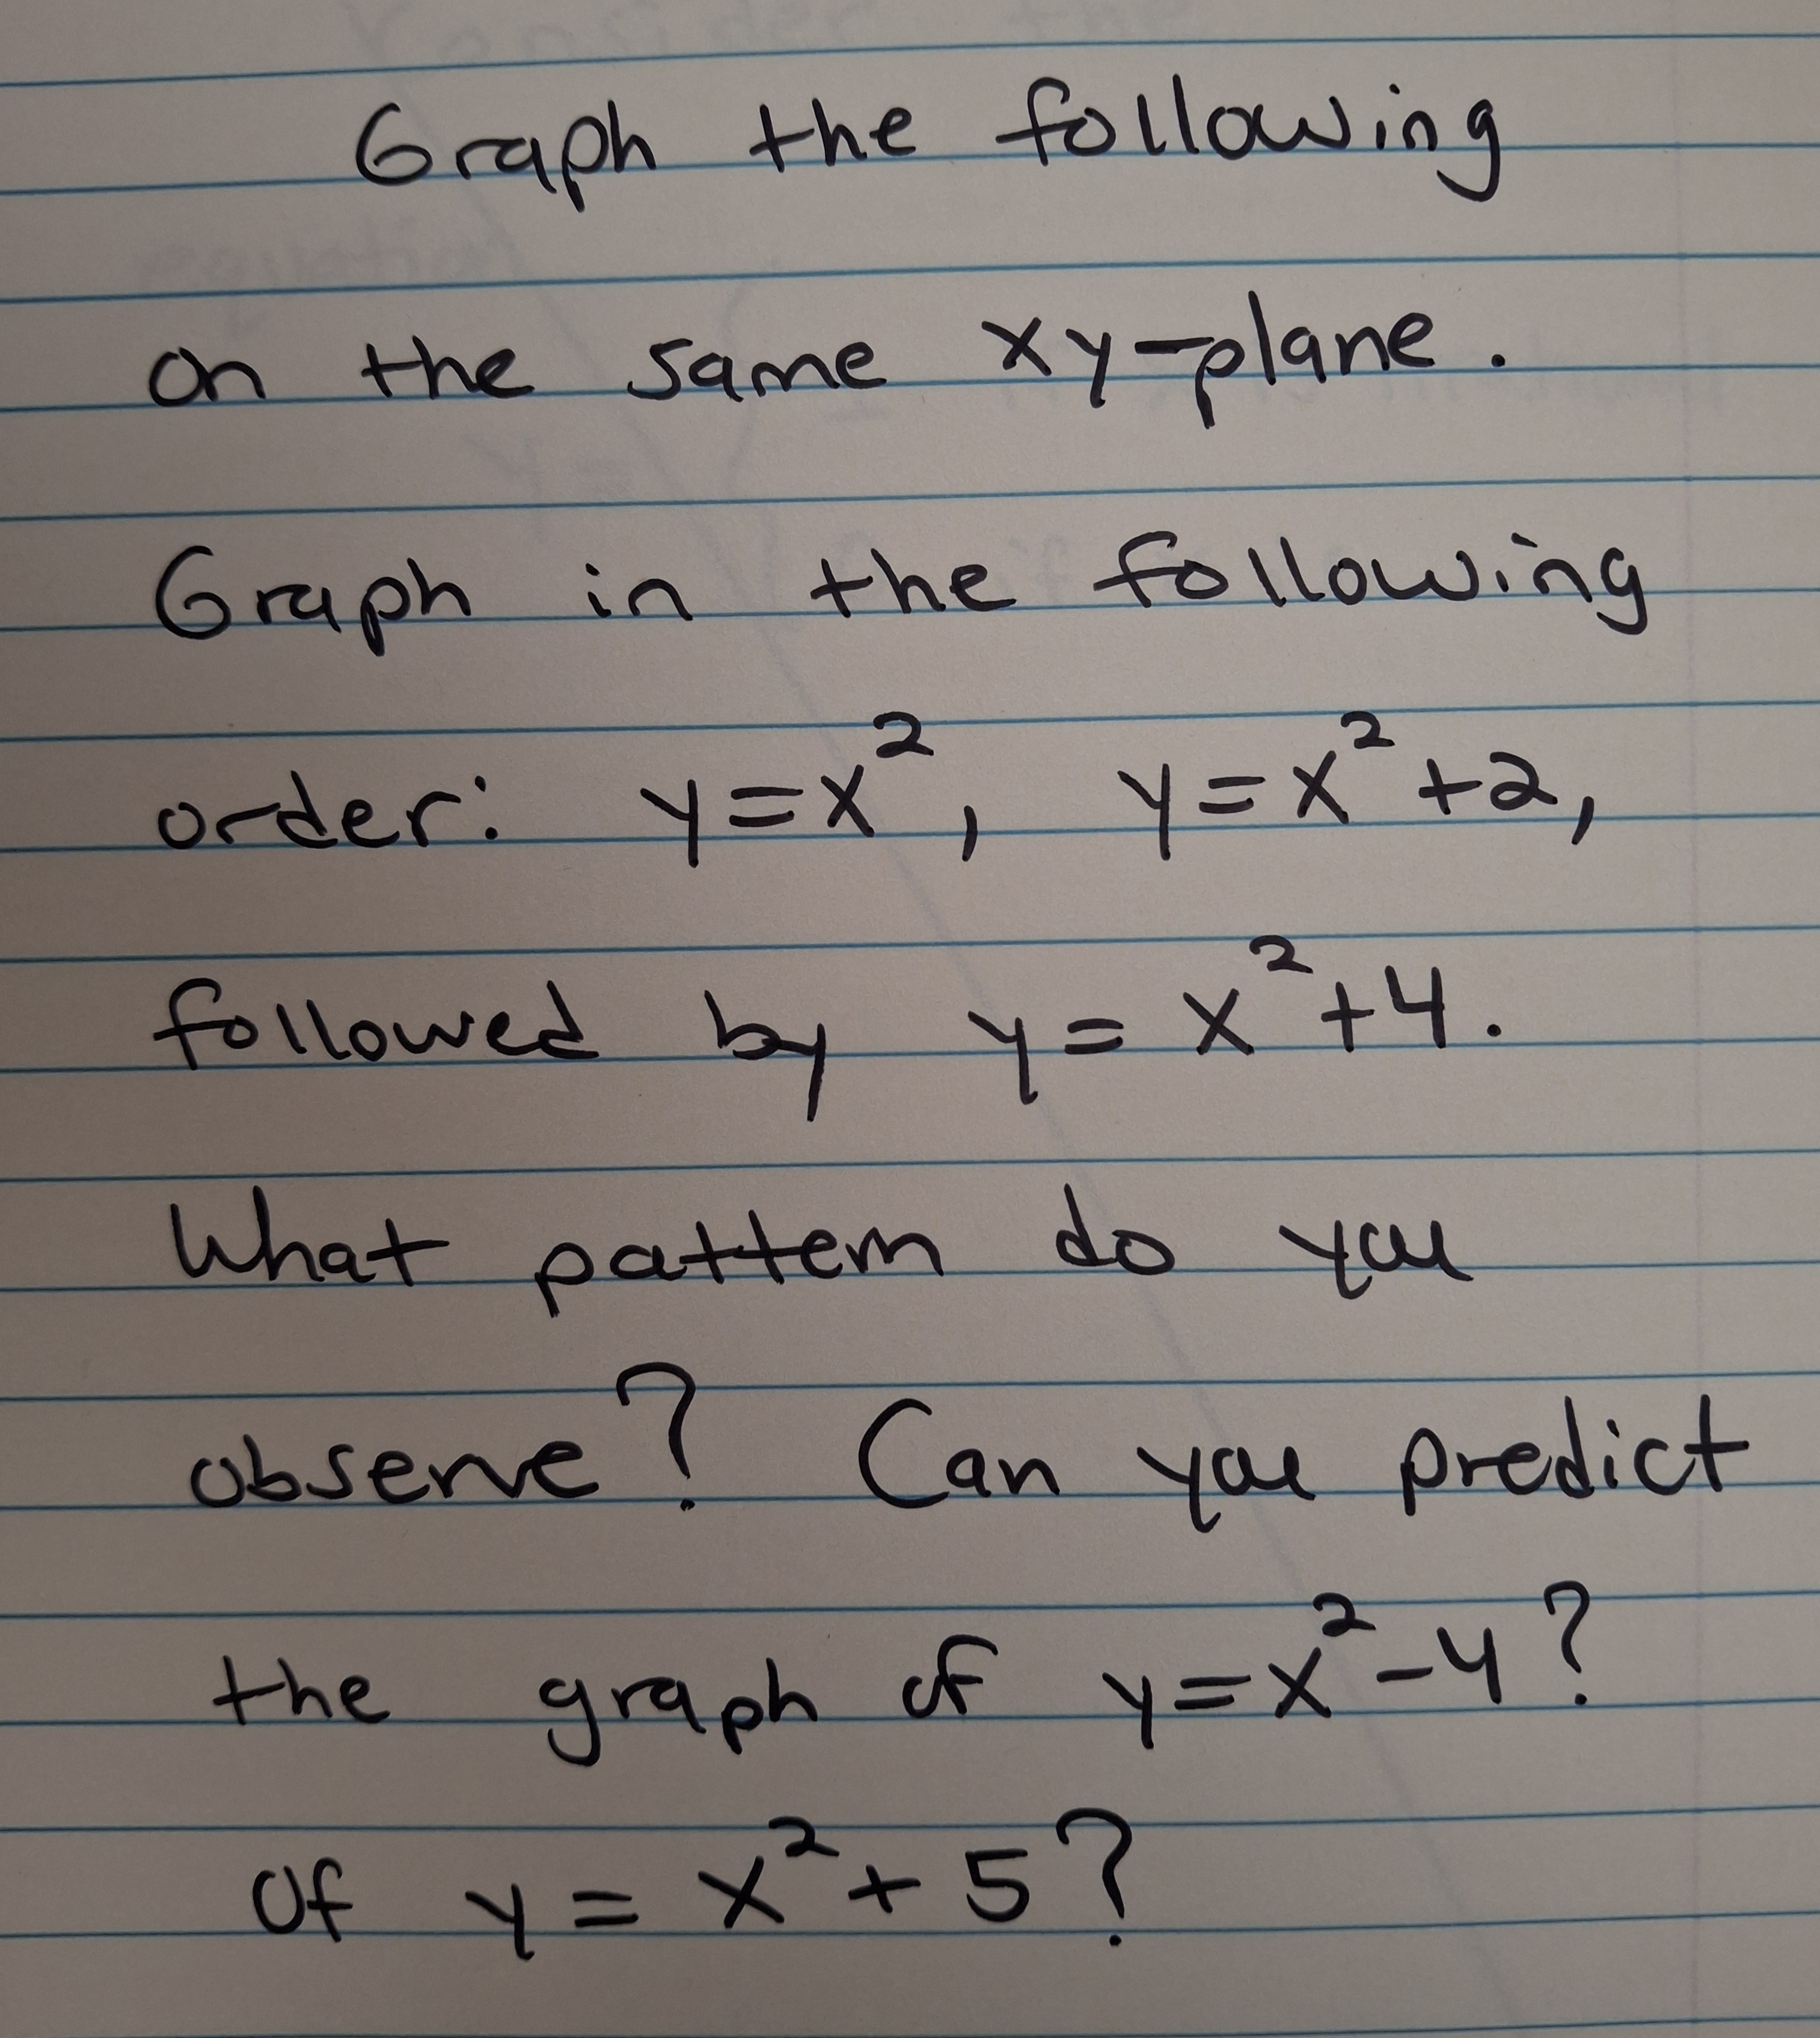 Graph the following
on the same xy-plane.
Graph in the following
order: y=x², y=x²+2,
followed by y=x²+4.
What pattern do you
observe? Can you predict
the graph of y=x²-4?
Of y=x²+5?